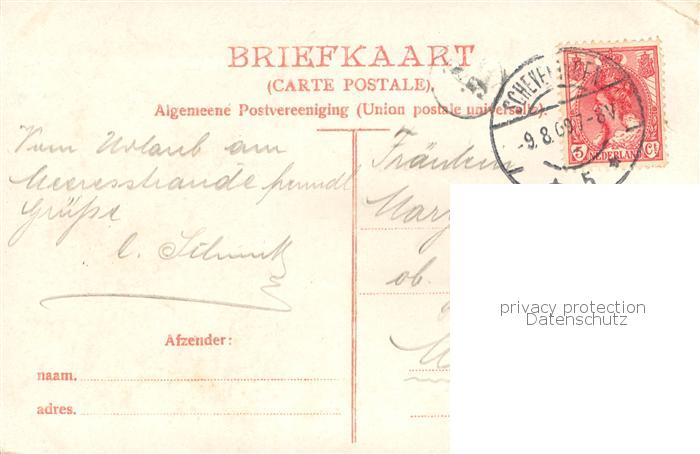 BRIEFKAART
(CARTE POSTALE).
Algemeene Postvereeniging (Union postale universelle).
SCHEVENINGEN
-9.8.09.7-8V
5
5 NEDERLAND Ct
Vom Urlaub am
Meeresstrande freundl
Grüße
Fräulein
ob.
Afzender:
naam.
adres.
privacy protection
Datenschutz